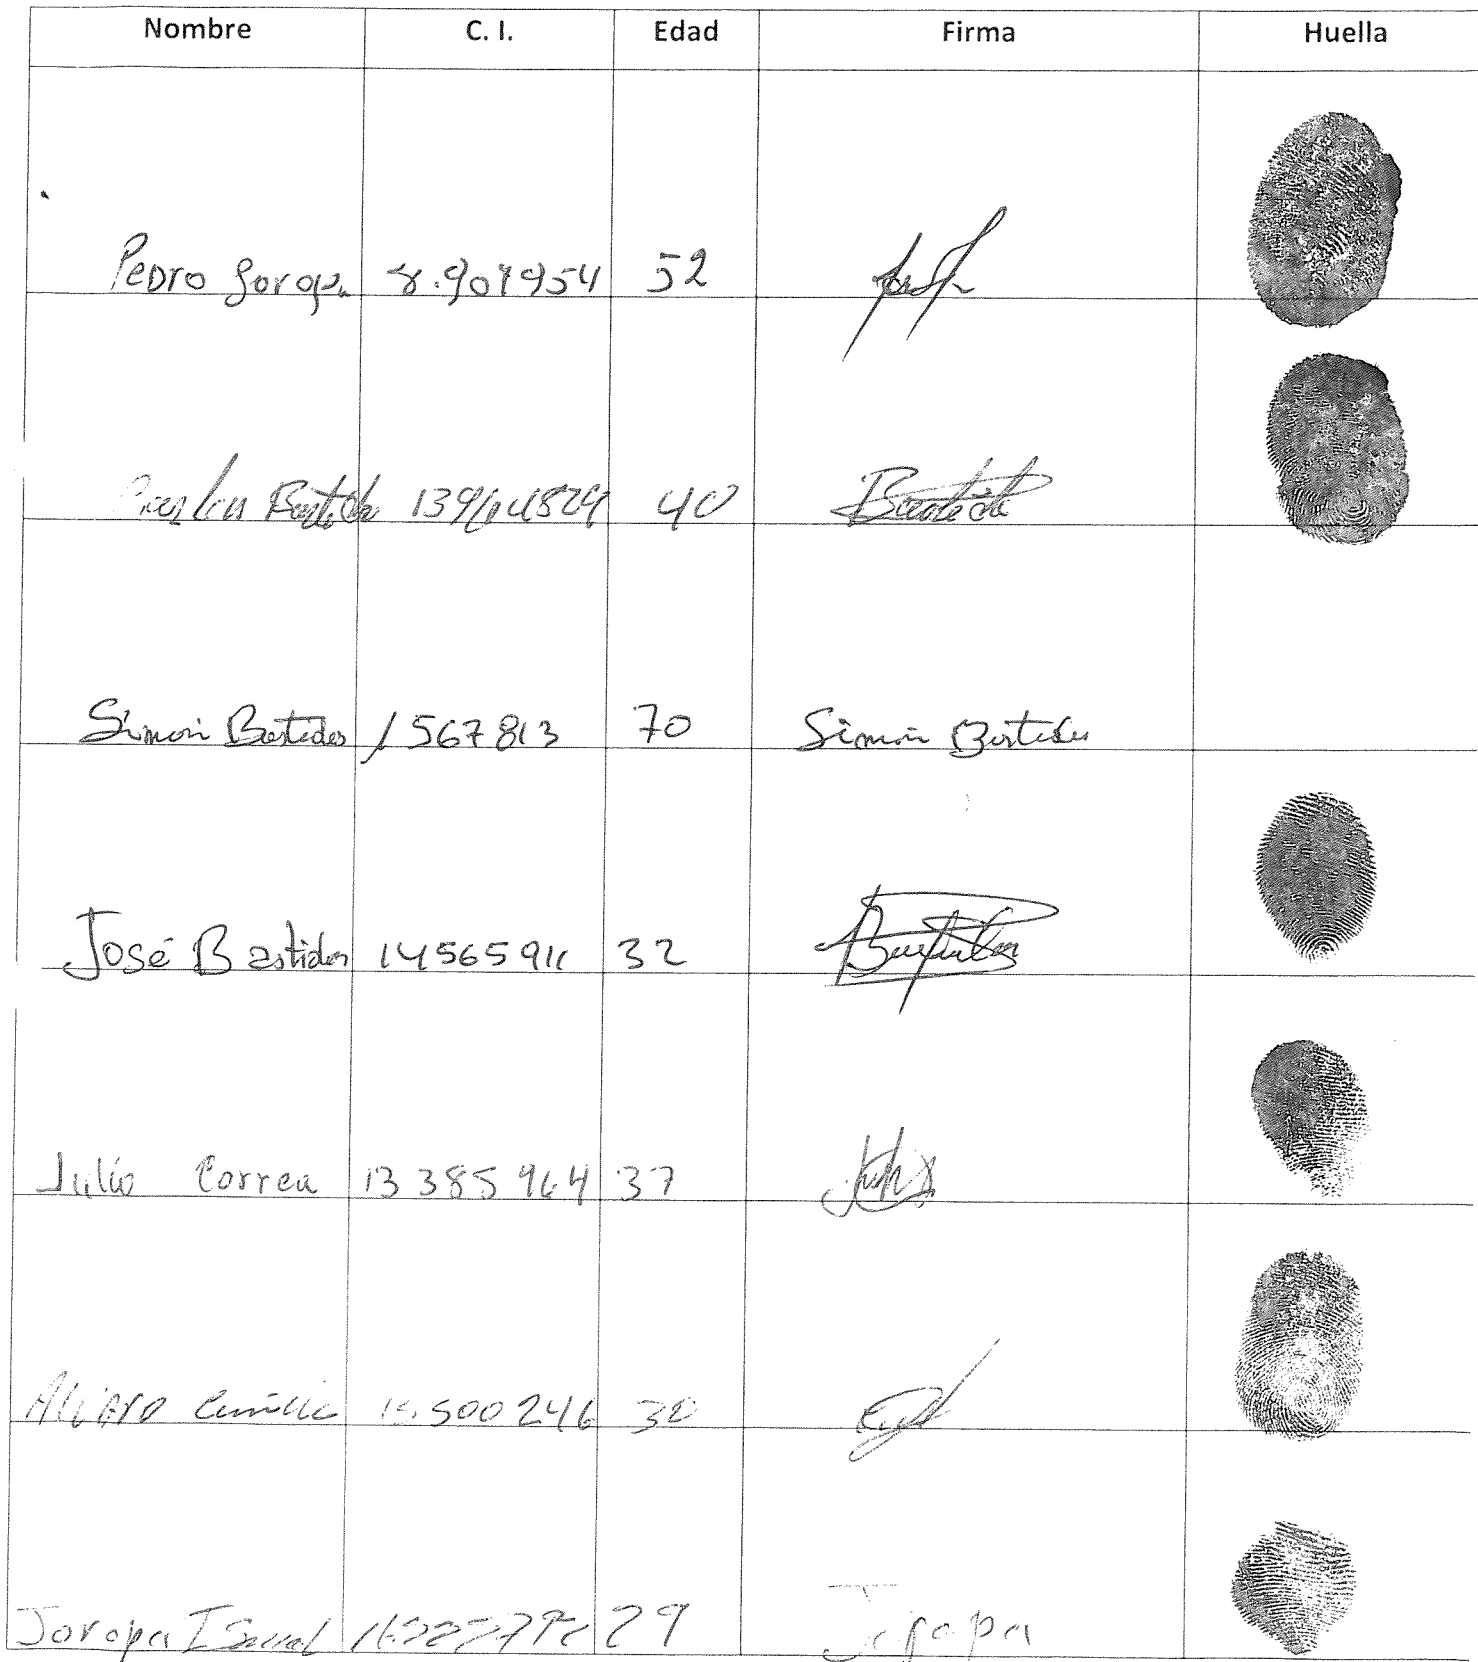 Nombre C. I. Edad Firma Huella
Pedro Joropa 8.907954 52
Bastidas 40 Bastida
Simón Bastidas 1567813 70 Simón Bastidas
José Bastidas 14565911 32 Bastidas
Julio Correa 13385964 37
15.500246 30
Joropa 29 Joropa